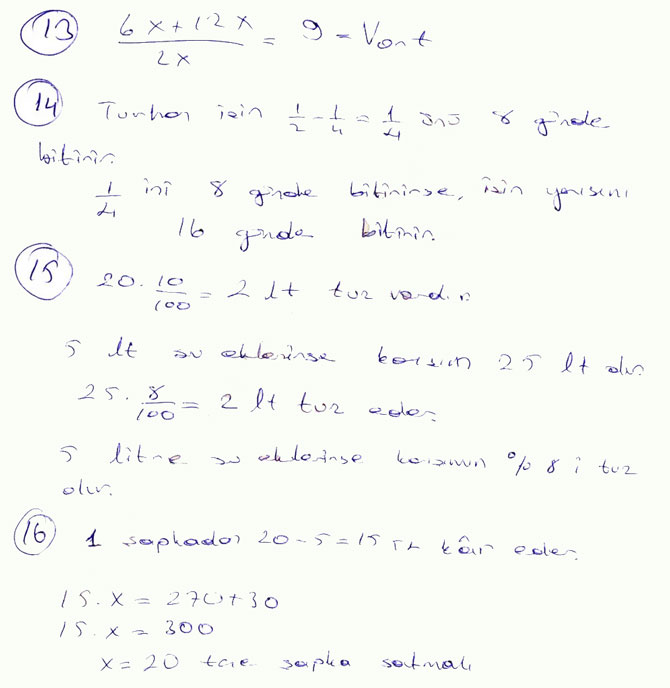 13 (6x+12x)/2x = 9 = Vort
14 Turhan işin 1/2 - 1/4 = 1/4 ünü 8 günde
bitirir.
1/4 ini 8 günde bitirirse, işin yarısını
16 günde bitirir.
15 20 . 10/100 = 2 lt tuz vardır.
5 lt su eklenirse karışım 25 lt olur.
25 . 8/100 = 2 lt tuz eder.
5 litre su eklenirse karışımın % 8 i tuz
olur.
16 1 şapkadan 20 - 5 = 15 TL kâr eder.
15 . x = 270 + 30
15 . x = 300
x = 20 tane şapka satmalı